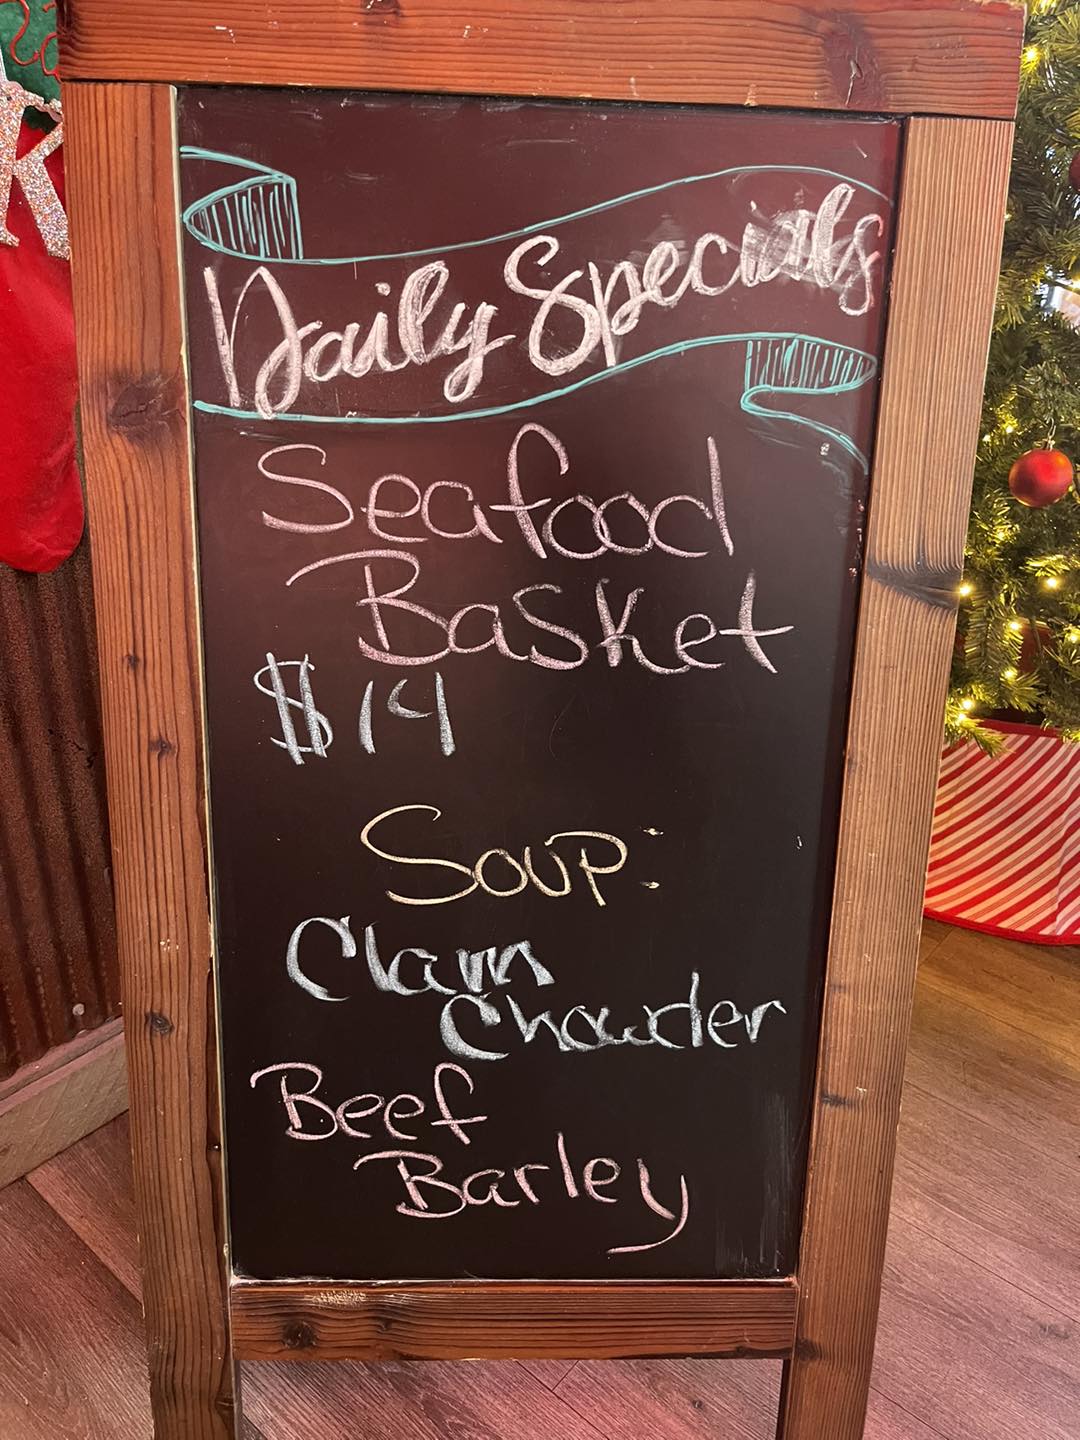 Daily Specials
Seafood
Basket
$14
Soup:
Clam
Chowder
Beef
Barley
K